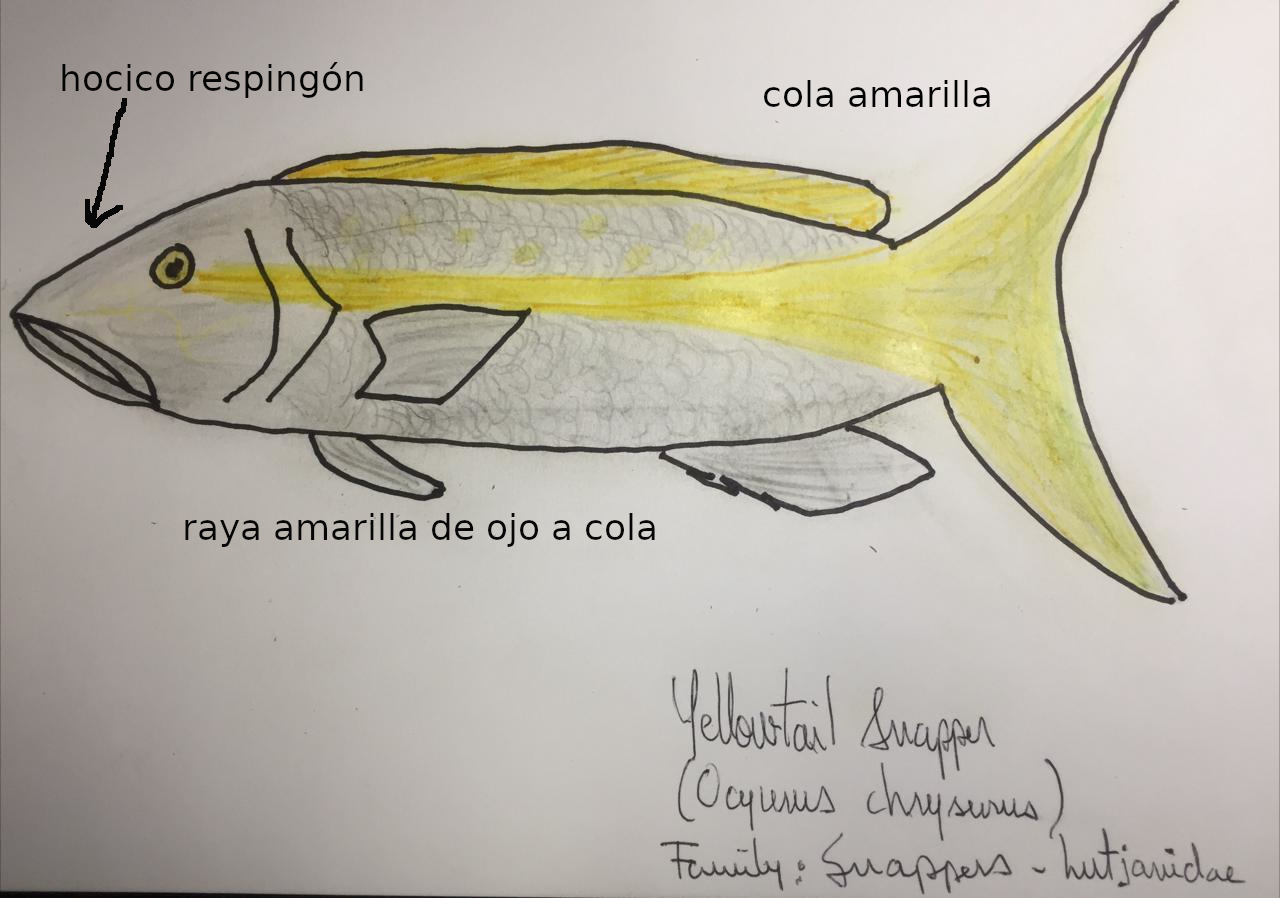 hocico respingón
cola amarilla
raya amarilla de ojo a cola
Yellowtail Snapper
(Ocyurus chrysurus)
Family: Snappers - Lutjanidae